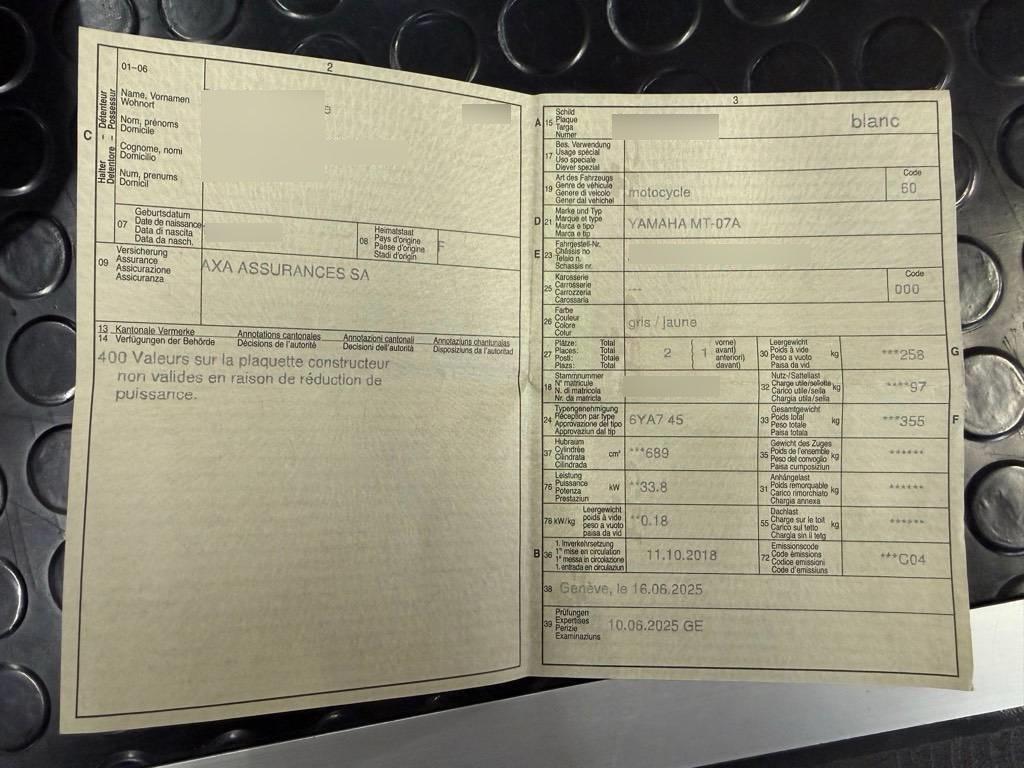 2
01-06
Détenteur
Possessur
Halter
Detentore
C
Name, Vornamen
Wohnort
Nom, prénoms
Domicile
Cognome, nomi
Domicilio
Num, prenums
Domicil
07
Geburtsdatum
Date de naissance
Data di nascita
Data da nasch.
08
Heimatstaat
Pays d'origine
Paese d'origine
Stadi d'origin
F
09
Versicherung
Assurance
Assicurazione
Assicuranza
AXA ASSURANCES SA
13 Kantonale Vermerke Annotations cantonales Annotazioni cantonali Annotaziuns chantunalas
14 Verfügungen der Behörde Décisions de l'autorité Decisioni dell'autorità Disposiziuns da l'autoritad
400 Valeurs sur la plaquette constructeur
non valides en raison de réduction de
puissance.
3
A 15
Schild
Plaque
Targa
Numer
blanc
17
Bes. Verwendung
Usage spécial
Uso speciale
Diever spezial
19
Art des Fahrzeugs
Genre de véhicule
Genere di veicolo
Gener dal vehichel
motocycle
Code
60
D 21
Marke und Typ
Marque et type
Marca e tipo
Marca e tip
YAMAHA MT-07A
E 23
Fahrgestell-Nr.
Châssis no
Telaio n.
Schassis nr.
25
Karosserie
Carrosserie
Carrozzeria
Carossaria
---
Code
000
26
Farbe
Couleur
Colore
Colur
gris / jaune
27
Plätze: Total
Places: Total
Posti: Totale
Plazs: Total
2
( 1
vorne)
avant)
anteriori)
davant)
30
Leergewicht
Poids à vide
Peso a vuoto
Paisa da vid
kg
***258
G
18
Stammnummer
N° matricule
N. di matricola
Nr. da matricla
32
Nutz-/Sattellast
Charge utile/sellette
Carico utile/sella
Chargia utila/sella
kg
****97
24
Typengenehmigung
Réception par type
Approvazione del tipo
Approvaziun dal tip
6YA7 45
33
Gesamtgewicht
Poids total
Peso totale
Paisa totala
kg
***355
F
37
Hubraum
Cylindrée
Cilindrata
Cilindrada
cm³
**689
35
Gewicht des Zuges
Poids de l'ensemble
Peso del convoglio
Paisa cumposiziun
kg
******
76
Leistung
Puissance
Potenza
Prestaziun
kW
**33.8
31
Anhängelast
Poids remorquable
Carico rimorchiato
Chargia annexa
kg
******
78 kW/kg
Leergewicht
poids à vide
peso a vuoto
paisa da vid
**0.18
55
Dachlast
Charge sur le toit
Carico sul tetto
Chargia sin il tetg
kg
******
B 36
1. Inverkehrsetzung
1re mise en circulation
1a messa in circolazione
1. entrada en circulaziun
11.10.2018
72
Emissionscode
Code émissions
Codice emissioni
Code d'emissiuns
***G04
38 Genève, le 16.06.2025
39
Prüfungen
Expertises
Perizie
Examinaziuns
10.06.2025 GE